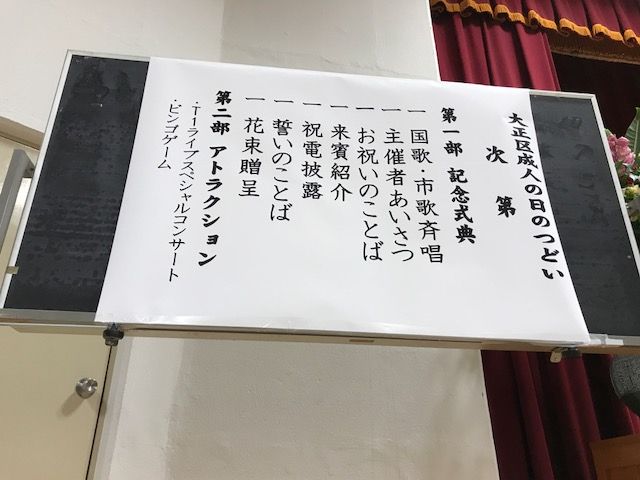 大正区成人の日のつどい
次第
第一部 記念式典
一 国歌・市歌斉唱
一 主催者あいさつ
一 お祝いのことば
一 来賓紹介
一 祝電披露
一 誓いのことば
一 花束贈呈
第二部 アトラクション
・T-1ライブスペシャルコンサート
・ビンゴゲーム